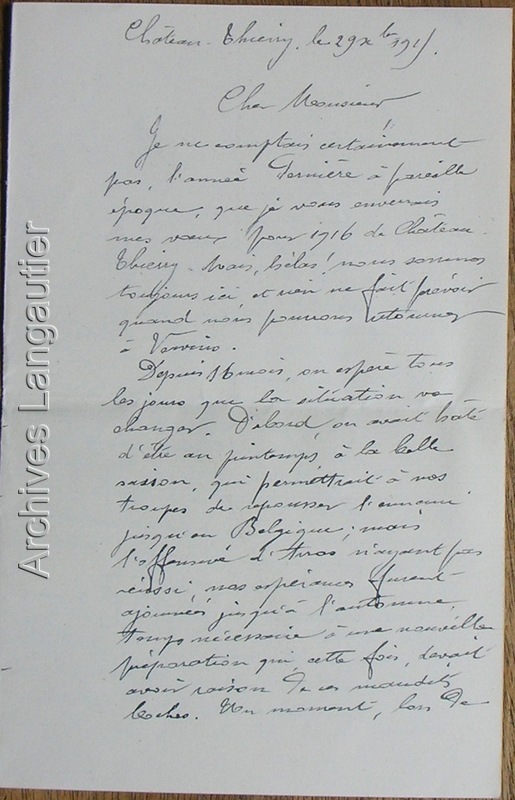 Château-Thierry, le 29 Xbre 1915.
Cher Monsieur
Je ne comptais certainement
pas, l'année dernière à pareille
époque, que je vous enverrais
mes vœux pour 1916 de Château-
Thierry. Mais, hélas! nous sommes
toujours ici, et rien ne fait prévoir
quand nous pourrons retourner
à Vervins.
Depuis 16 mois, on espère tous
les jours que la situation va
changer. D'abord, on avait hâte
d'être au printemps, à la belle
saison, qui permettrait à nos
troupes de repousser l'ennemi
jusqu'en Belgique; mais
l'offensive d'Arras n'ayant pas
réussi, nos espérances furent
ajournées jusqu'à l'automne,
temps nécessaire à une nouvelle
préparation qui, cette fois, devait
avoir raison de ces maudits
boches. Un moment, lors de
Archives Langautier